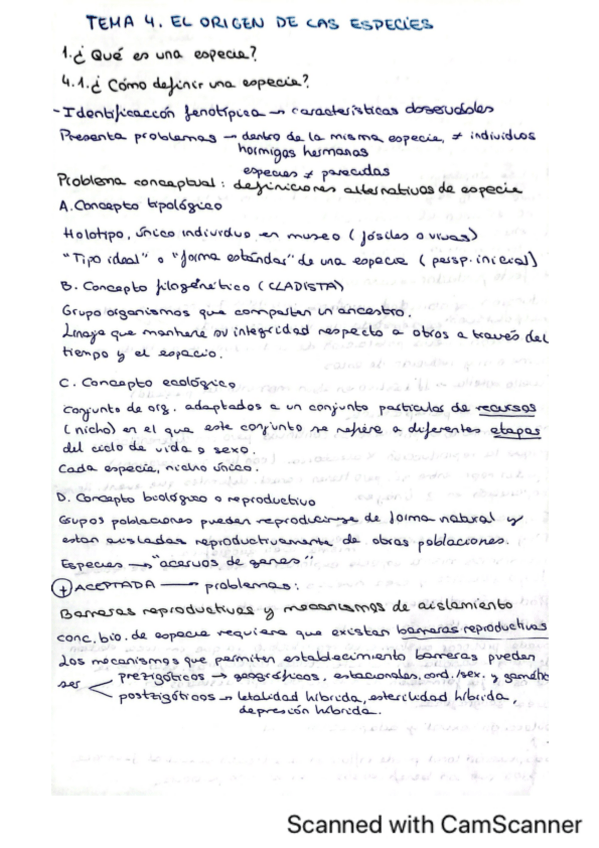 TEMA 4. EL ORIGEN DE LAS ESPECIES
1. ¿Qué es una especie?
4.1. ¿Cómo definir una especie?
- Identificación fenotípica → características observables
Presenta problemas → dentro de la misma especie, ≠ individuos
hormigas hermanas
especies ≠ parecidas
Problema conceptual: definiciones alternativas de especie
A. Concepto tipológico
Holotipo, único individuo en museo (fósiles o vivos)
"Tipo ideal" o "forma estándar" de una especie (persp. inicial)
B. Concepto filogenético (CLADISTA)
Grupo organismos que comparten un ancestro.
Linaje que mantiene su integridad respecto a otros a través del
tiempo y el espacio.
C. Concepto ecológico
Conjunto de org. adaptados a un conjunto particular de recursos
(nicho) en el que este conjunto se refiere a diferentes etapas
del ciclo de vida o sexo.
Cada especie, nicho único.
D. Concepto biológico o reproductivo
Grupos poblaciones pueden reproducirse de forma natural y
estan aisladas reproductivamente de otras poblaciones.
Especies → "acervos de genes".
+ ACEPTADA → problemas:
Barreras reproductivas y mecanismos de aislamiento
conc. bio. de especie requiere que existan barreras reproductivas
Los mecanismos que permiten establecimiento barreras pueden
ser prezigóticos → geográficos, estacionales, cond./sex. y gamétic
postzigóticos → letalidad híbrida, esterilidad híbrida,
depresión híbrida.
Scanned with CamScanner